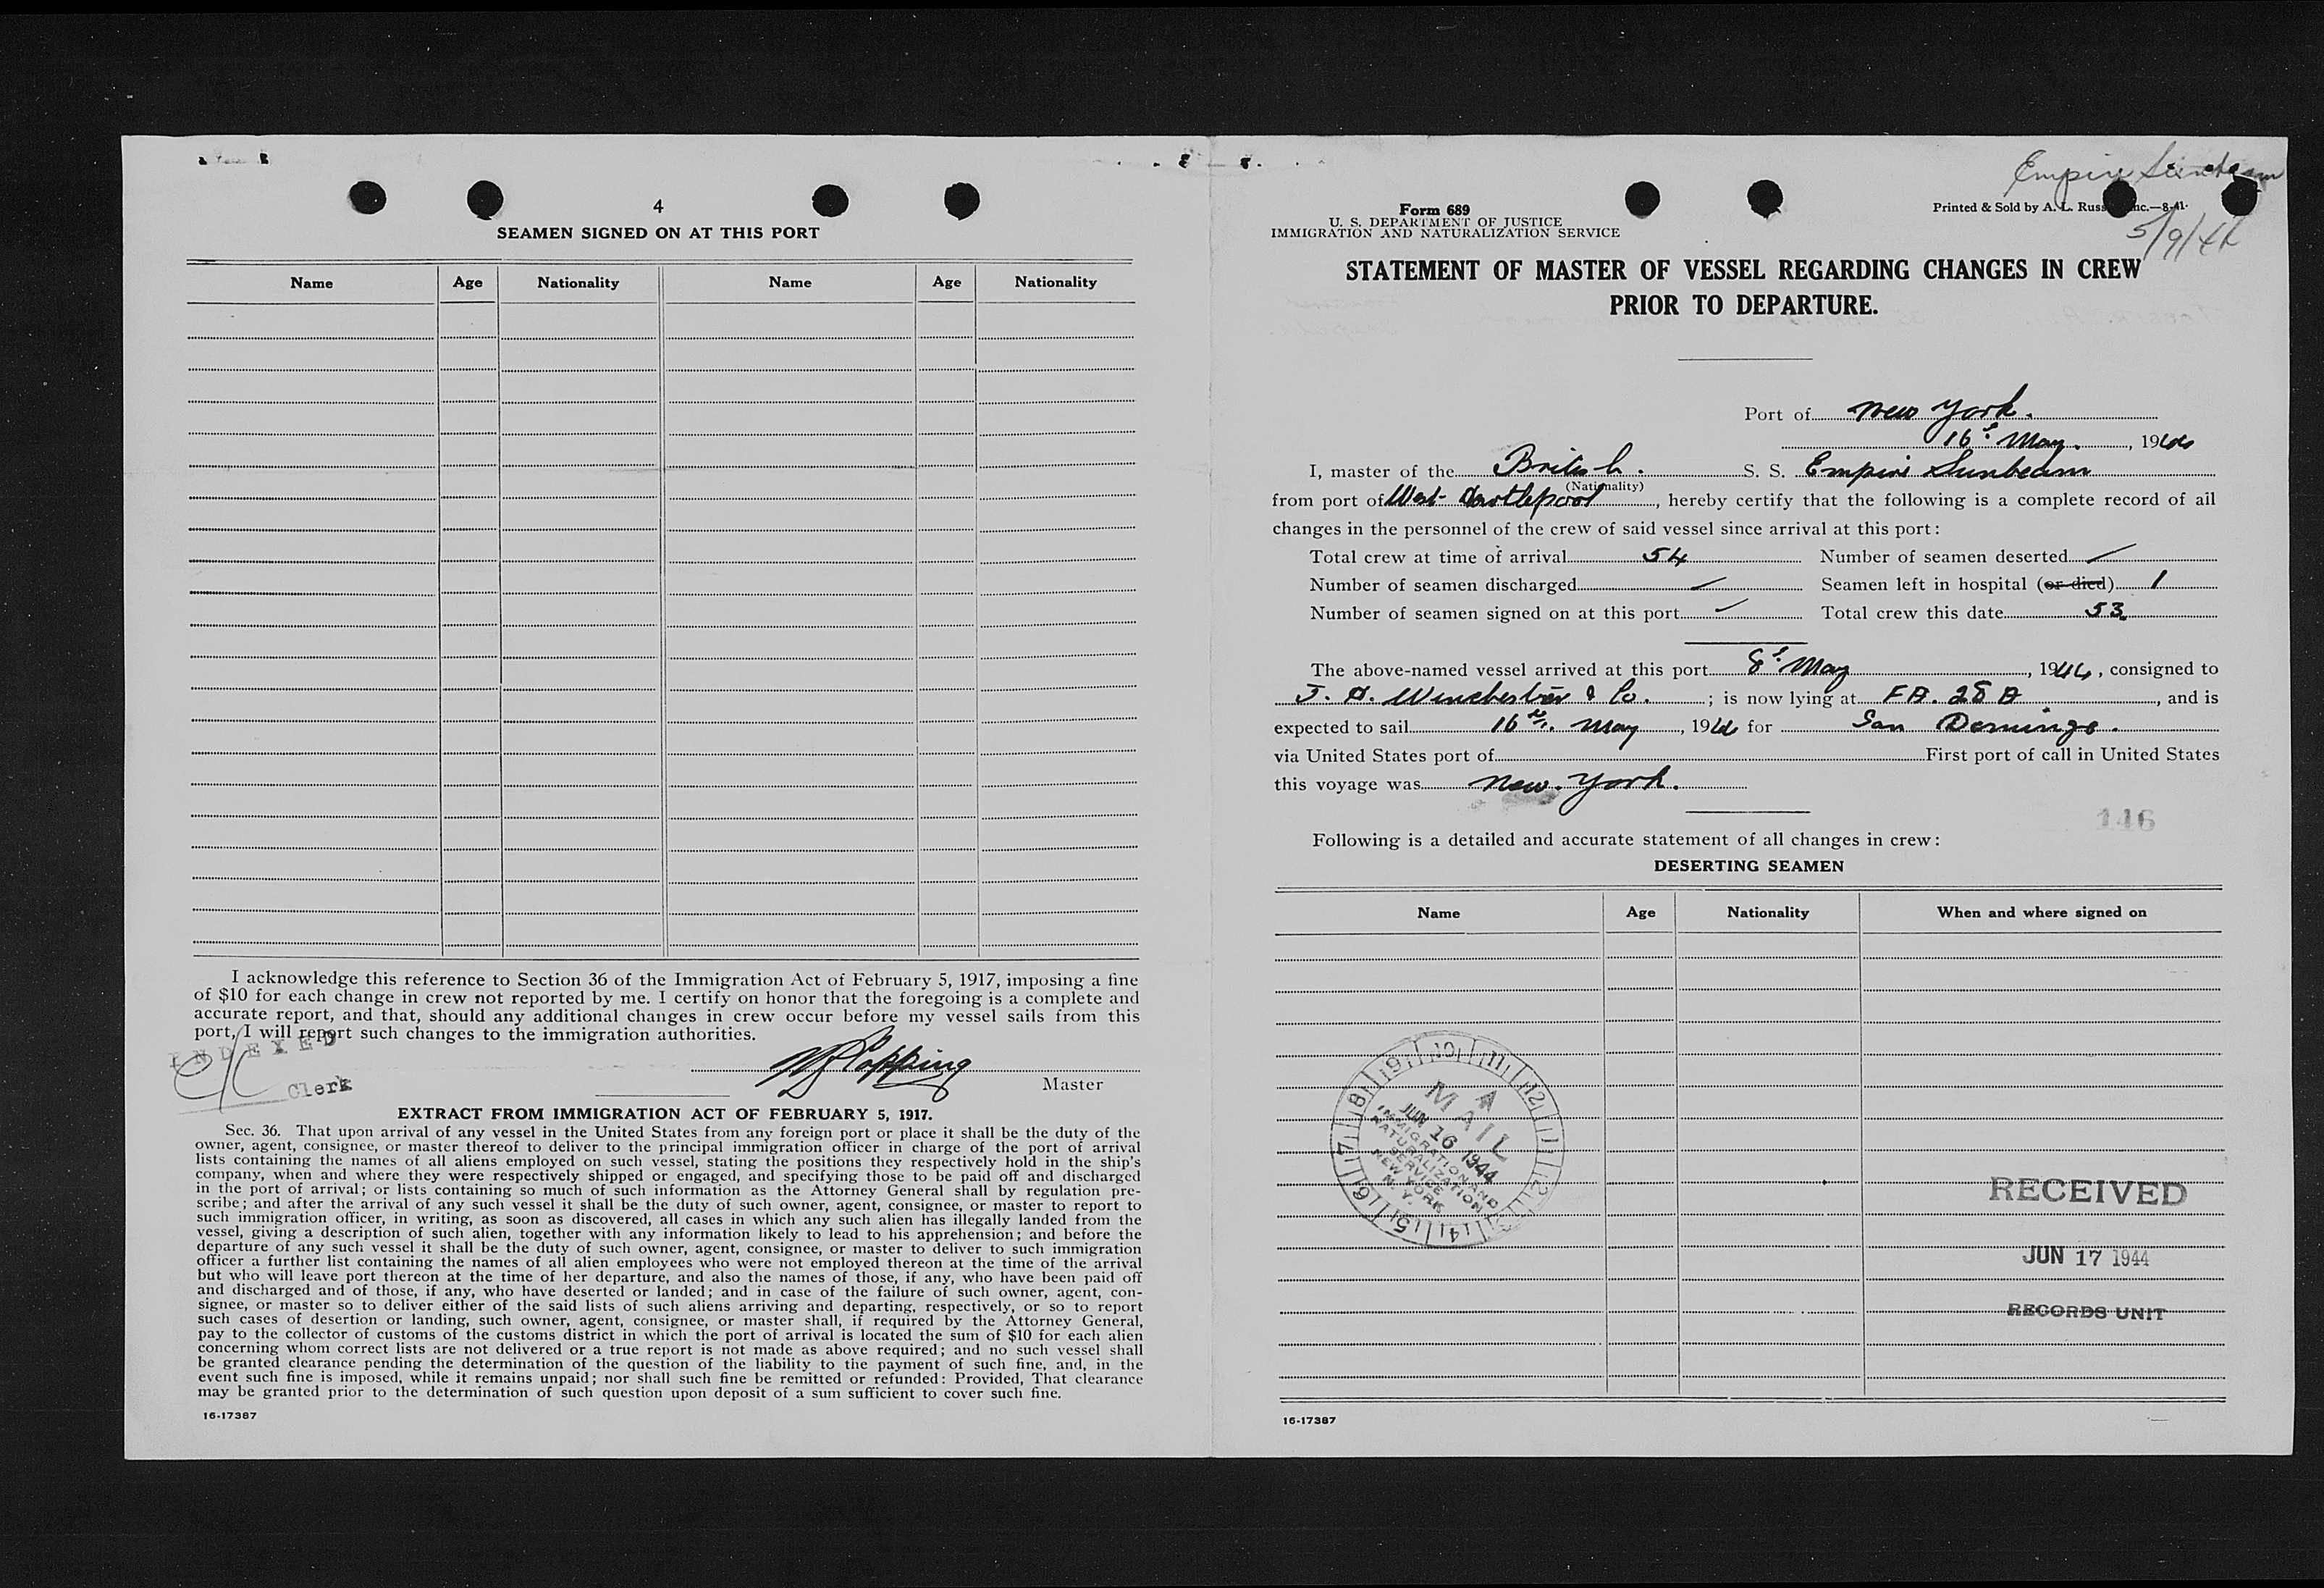 4
SEAMEN SIGNED ON AT THIS PORT
Name Age Nationality Name Age Nationality
I acknowledge this reference to Section 36 of the Immigration Act of February 5, 1917, imposing a fine
of $10 for each change in crew not reported by me. I certify on honor that the foregoing is a complete and
accurate report, and that, should any additional changes in crew occur before my vessel sails from this
port, I will report such changes to the immigration authorities.
INDEXED
Clerk
Master
EXTRACT FROM IMMIGRATION ACT OF FEBRUARY 5, 1917.
Sec. 36. That upon arrival of any vessel in the United States from any foreign port or place it shall be the duty of the
owner, agent, consignee, or master thereof to deliver to the principal immigration officer in charge of the port of arrival
lists containing the names of all aliens employed on such vessel, stating the positions they respectively hold in the ship's
company, when and where they were respectively shipped or engaged, and specifying those to be paid off and discharged
in the port of arrival; or lists containing so much of such information as the Attorney General shall by regulation pre-
scribe; and after the arrival of any such vessel it shall be the duty of such owner, agent, consignee, or master to report to
such immigration officer, in writing, as soon as discovered, all cases in which any such alien has illegally landed from the
vessel, giving a description of such alien, together with any information likely to lead to his apprehension; and before the
departure of any such vessel it shall be the duty of such owner, agent, consignee, or master to deliver to such immigration
officer a further list containing the names of all alien employees who were not employed thereon at the time of the arrival
but who will leave port thereon at the time of her departure, and also the names of those, if any, who have been paid off
and discharged and of those, if any, who have deserted or landed; and in case of the failure of such owner, agent, con-
signee, or master so to deliver either of the said lists of such aliens arriving and departing, respectively, or so to report
such cases of desertion or landing, such owner, agent, consignee, or master shall, if required by the Attorney General,
pay to the collector of customs of the customs district in which the port of arrival is located the sum of $10 for each alien
concerning whom correct lists are not delivered or a true report is not made as above required; and no such vessel shall
be granted clearance pending the determination of the question of the liability to the payment of such fine, and, in the
event such fine is imposed, while it remains unpaid; nor shall such fine be remitted or refunded: Provided, That clearance
may be granted prior to the determination of such question upon deposit of a sum sufficient to cover such fine.
16-17387
Empire Sunbeam
5/9/44
Form 689
U. S. DEPARTMENT OF JUSTICE
IMMIGRATION AND NATURALIZATION SERVICE
Printed & Sold by A. L. Russ Inc.—8-41
STATEMENT OF MASTER OF VESSEL REGARDING CHANGES IN CREW
PRIOR TO DEPARTURE.
Port of New York.
16th May., 1944
I, master of the British. S. S. Empire Sunbeam
(Nationality)
from port of West Hartlepool, hereby certify that the following is a complete record of all
changes in the personnel of the crew of said vessel since arrival at this port:
Total crew at time of arrival 54 Number of seamen deserted /
Number of seamen discharged / Seamen left in hospital (or died) 1
Number of seamen signed on at this port / Total crew this date 53
The above-named vessel arrived at this port 8th May, 1944, consigned to
J. D. Winchester & Co.; is now lying at F.A. 28 A, and is
expected to sail 16th. May, 1944 for San Domingo.
via United States port of First port of call in United States
this voyage was New York.
146
Following is a detailed and accurate statement of all changes in crew:
DESERTING SEAMEN
Name Age Nationality When and where signed on
A
MAIL
JUN 16 1944
IMMIGRATION AND
NATURALIZATION
SERVICE
NEW YORK
N. Y.
RECEIVED
JUN 17 1944
RECORDS UNIT
16-17387